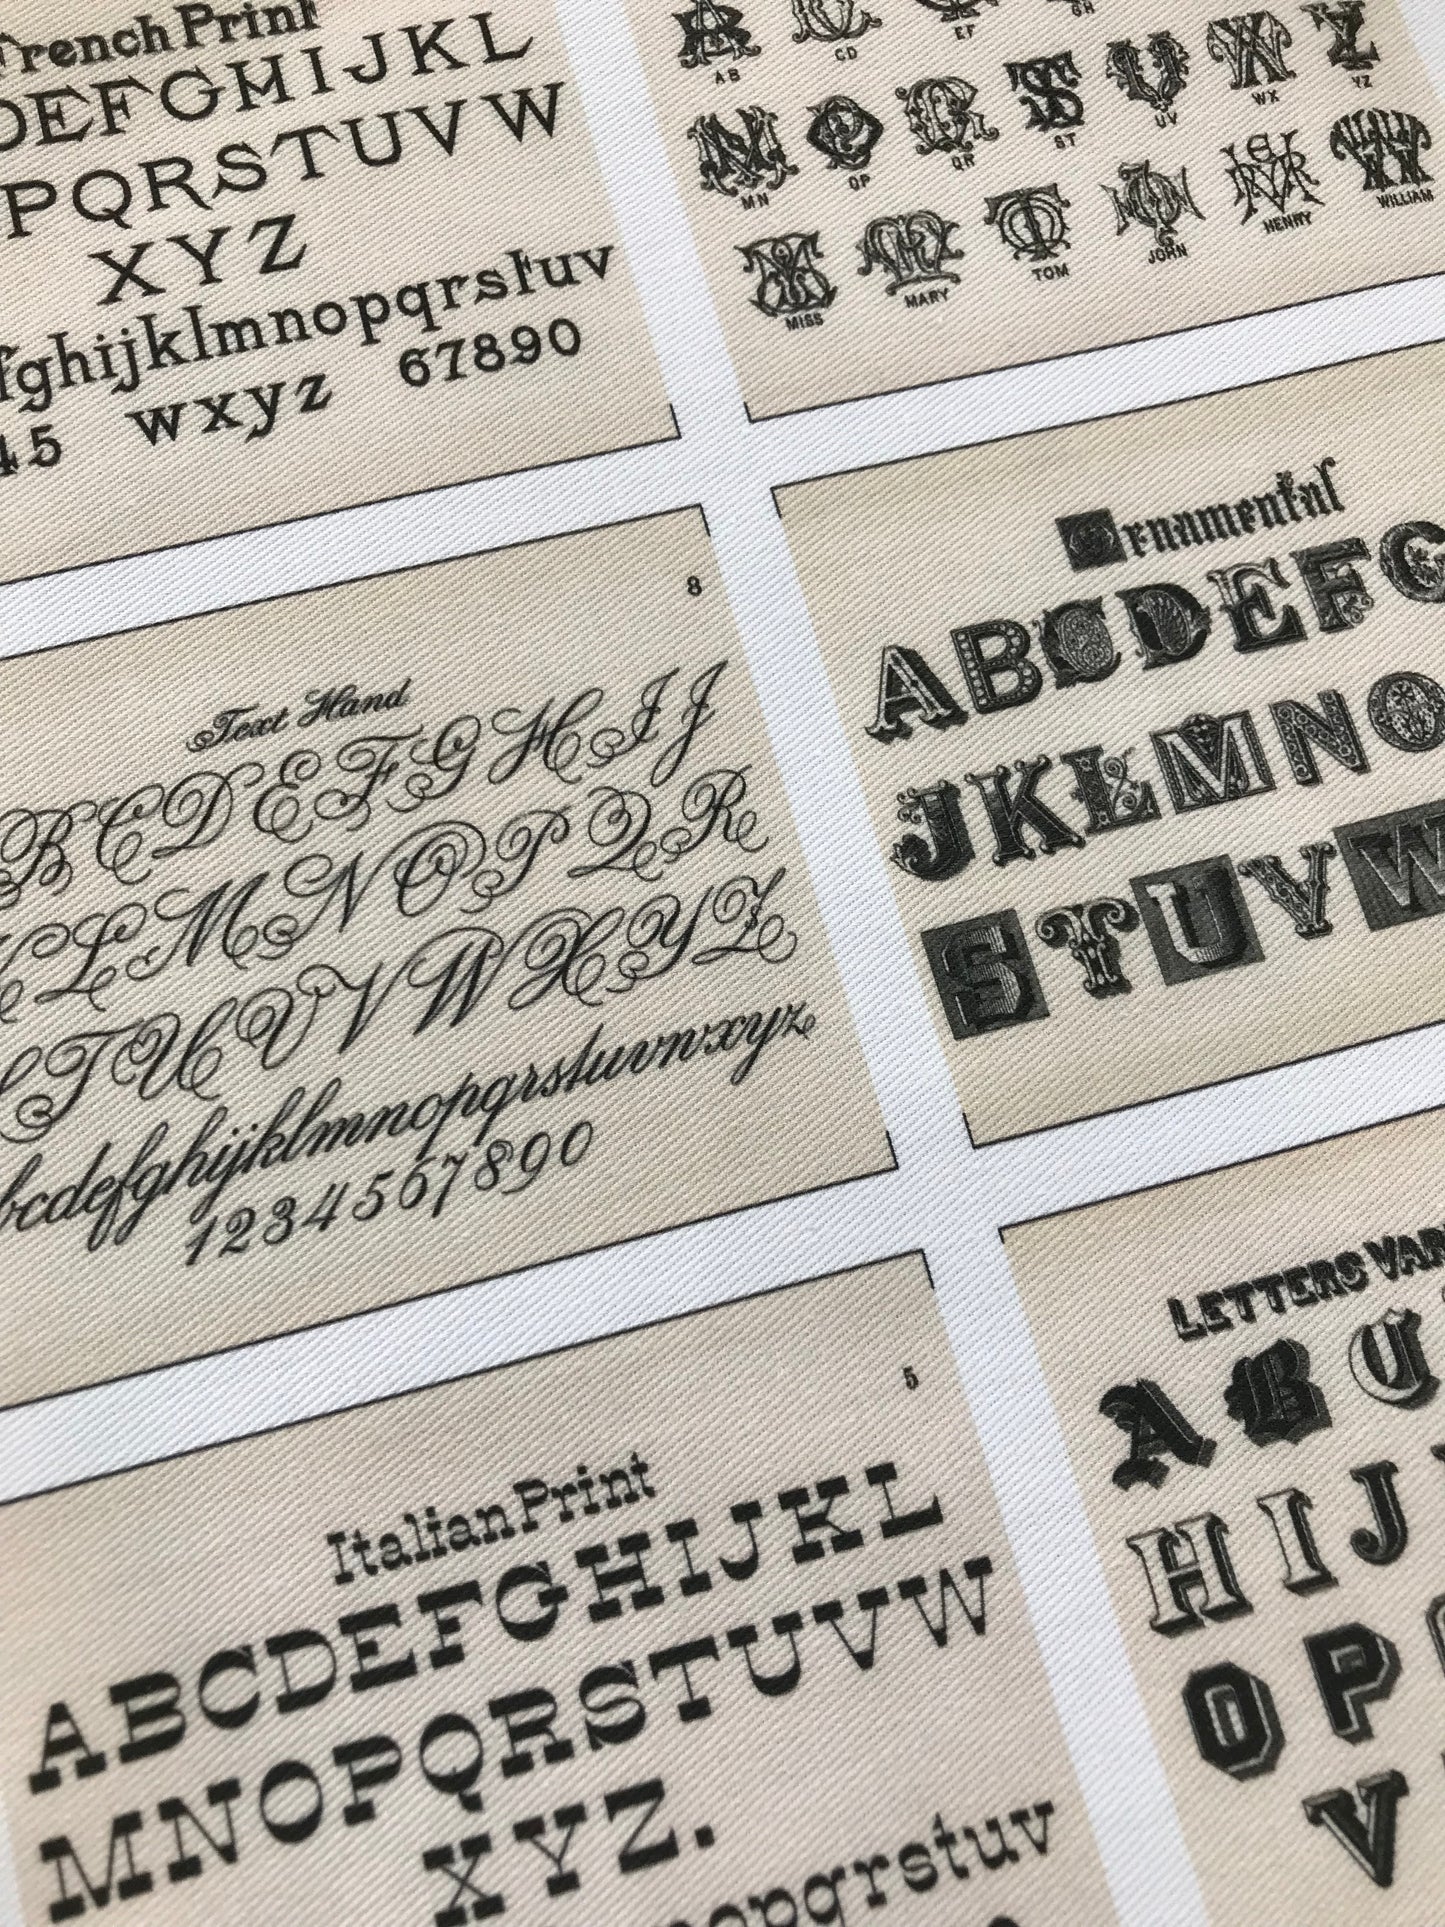 French Print
DEFGHIJKL
PQRSTUVW
XYZ
fghijklmnopqrstuv
45 wxyz 67890
AB CD EF GH
MN OP QR ST UV WX YZ
MISS MARY TOM JOHN HENRY WILLIAM
8
Text Hand
BCDEFGHIJ
KLMNOPQR
STUVWXYZ
bcdefghijklmnopqrstuvwxyz
1234567890
Ornamental
ABCDEFG
JKLMNO
STUVW
5
Italian Print
ABCDEFGHIJKL
MNOPQRSTUVW
XYZ.
nopqrstuv
LETTERS VAR
ABC
HIJ
OP
V